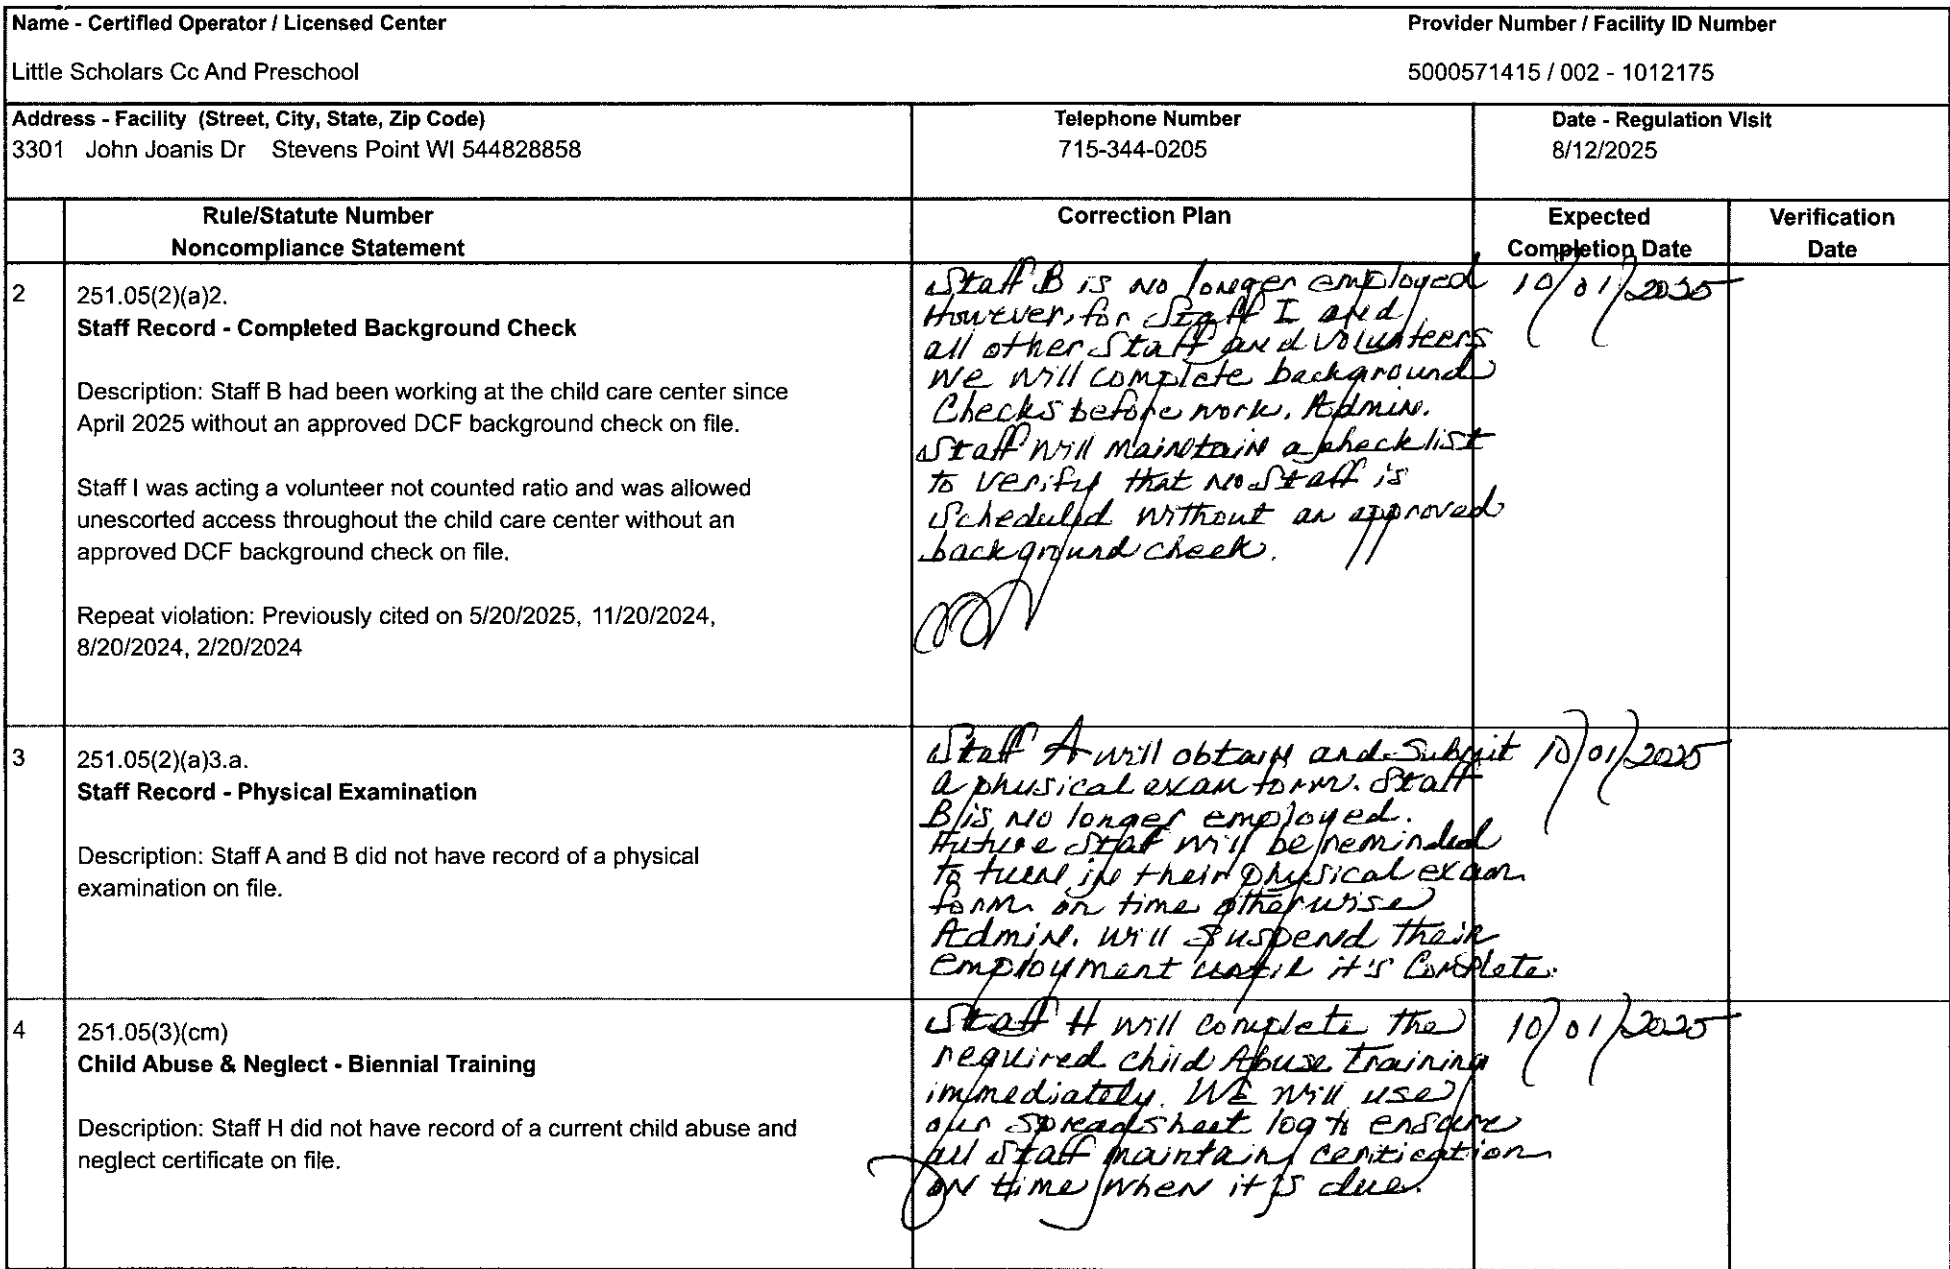 Name - Certified Operator / Licensed Center
Provider Number / Facility ID Number
Little Scholars Cc And Preschool
5000571415 / 002 - 1012175
Address - Facility (Street, City, State, Zip Code)
Telephone Number
Date - Regulation Visit
3301 John Joanis Dr Stevens Point WI 544828858
715-344-0205
8/12/2025
Rule/Statute Number
Noncompliance Statement
Correction Plan
Expected
Completion Date
Verification
Date
2
251.05(2)(a)2.
Staff Record - Completed Background Check
Description: Staff B had been working at the child care center since
April 2025 without an approved DCF background check on file.
Staff I was acting a volunteer not counted ratio and was allowed
unescorted access throughout the child care center without an
approved DCF background check on file.
Repeat violation: Previously cited on 5/20/2025, 11/20/2024,
8/20/2024, 2/20/2024
Staff B is no longer employed
However, for Staff I and
all other Staff and volunteers
we will complete background
Checks before work. Admin.
Staff will maintain a checklist
to verify that no Staff is
Scheduled without an approved
background check.
10/01/2025
3
251.05(2)(a)3.a.
Staff Record - Physical Examination
Description: Staff A and B did not have record of a physical
examination on file.
Staff A will obtain and Submit
a physical exam form. Staff
B is no longer employed.
Future Staf will be reminded
to turn in their physical exam
form on time otherwise
Admin. will Suspend their
employment until it's Complete.
10/01/2025
4
251.05(3)(cm)
Child Abuse & Neglect - Biennial Training
Description: Staff H did not have record of a current child abuse and
neglect certificate on file.
Staff H will complete the
required child Abuse training
immediately. WE will use
our Spreadsheet log to ensure
all Staff maintain centication
on time when it's due.
10/01/2025